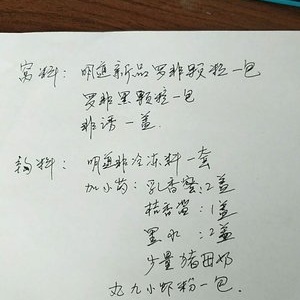 窝料：明道新品罗非颗粒一包
罗非黑颗粒一包
非诱一盖
钩料：明道非冷冻料一套
加小药：乳香蜜：2盖
桔香蛮：1盖
墨水：2盖
少量猪母奶
丸九小虾粉一包.